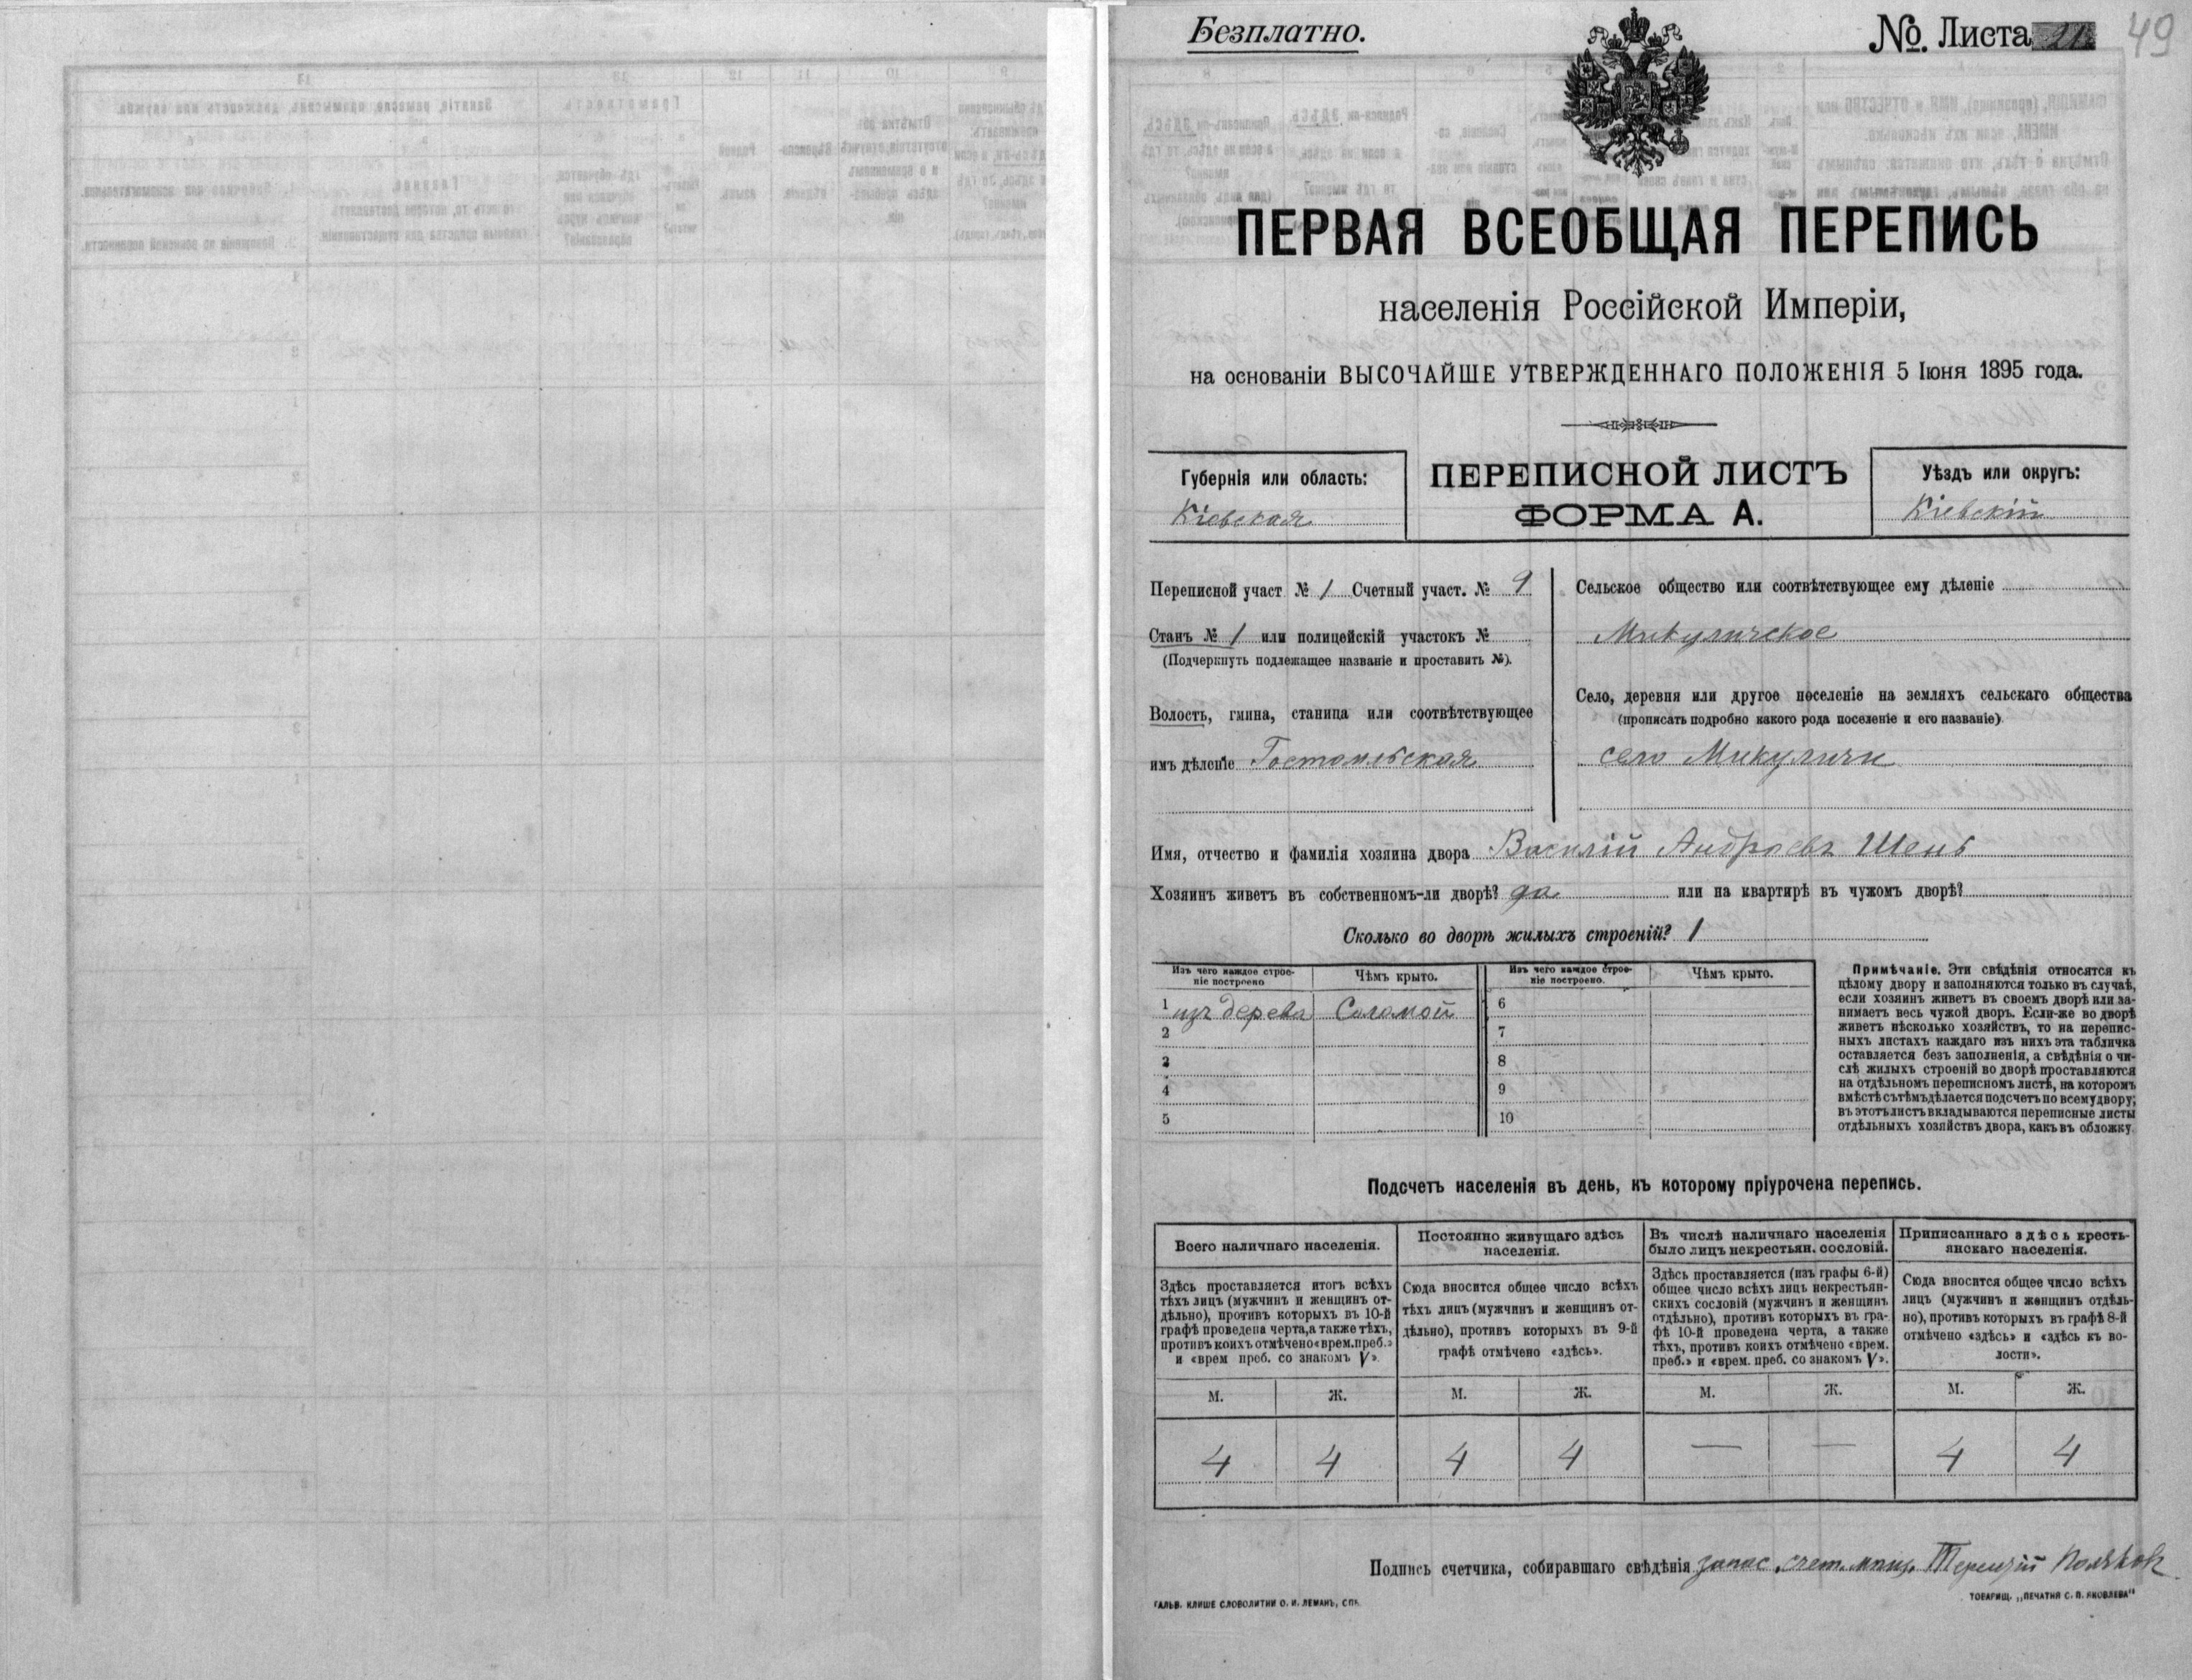 Безплатно.
№. Листа 21
49
ПЕРВАЯ ВСЕОБЩАЯ ПЕРЕПИСЬ
населенія Россійской Имперіи,
на основаніи ВЫСОЧАЙШЕ УТВЕРЖДЕННАГО ПОЛОЖЕНІЯ 5 Іюня 1895 года.
Губернія или область:
Кіевская
ПЕРЕПИСНОЙ ЛИСТЪ
ФОРМА А.
Уѣздъ или округъ:
Кіевскій
Переписной участ № 1 Счетный участ. № 9
Станъ № 1 или полицейскій участокъ №
(Подчеркнуть подлежащее названіе и проставить №).
Волость, гмина, станица или соотвѣтствующее
имъ дѣленіе Гостомльская
Сельское общество или соотвѣтствующее ему дѣленіе
Микуличское
Село, деревня или другое поселеніе на земляхъ сельскаго общества
(прописать подробно какого рода поселеніе и его названіе)
село Микуличи
Имя, отчество и фамилія хозяина двора Василій Андреевъ Шень
Хозяинъ живетъ въ собственномъ-ли дворѣ? да или на квартирѣ въ чужомъ дворѣ?
Сколько во дворѣ жилыхъ строеній? 1
Изъ чего каждое строе-
ніе построено
Чѣмъ крыто.
Изъ чего каждое строе-
ніе построено.
Чѣмъ крыто.
1 изъ дерева Соломой 6
2 7
3 8
4 9
5 10
Примѣчаніе. Эти свѣдѣнія относятся къ
цѣлому двору и заполняются только въ случаѣ,
если хозяинъ живетъ въ своемъ дворѣ или за-
нимаетъ весь чужой дворъ. Если-же во дворѣ
живетъ нѣсколько хозяйствъ, то на перепис-
ныхъ листахъ каждаго изъ нихъ эта табличка
оставляется безъ заполненія, а свѣдѣнія о чи-
слѣ жилыхъ строеній во дворѣ проставляются
на отдѣльномъ переписномъ листѣ, на которомъ
вмѣстѣ съ тѣмъ дѣлается подсчетъ по всему двору;
въ этотъ листъ вкладываются переписные листы
отдѣльныхъ хозяйствъ двора, какъ въ обложку.
Подсчетъ населенія въ день, къ которому пріурочена перепись.
Всего наличнаго населенія.
Постоянно живущаго здѣсь
населенія.
Въ числѣ наличнаго населенія
было лицъ некрестьян. сословій.
Приписаннаго здѣсь кресть-
янскаго населенія.
Здѣсь проставляется итогъ всѣхъ
тѣхъ лицъ (мужчинъ и женщинъ от-
дѣльно), противъ которыхъ въ 10-й
графѣ проведена черта, а также тѣхъ,
противъ коихъ отмѣчено «врем. преб.»
и «врем преб. со знакомъ V».
Сюда вносится общее число всѣхъ
тѣхъ лицъ (мужчинъ и женщинъ от-
дѣльно), противъ которыхъ въ 9-й
графѣ отмѣчено «здѣсь».
Здѣсь проставляется (изъ графы 6-й)
общее число всѣхъ лицъ некрестьян-
скихъ сословій (мужчинъ и женщинъ
отдѣльно), противъ которыхъ въ гра-
фѣ 10-й проведена черта, а также
тѣхъ, противъ коихъ отмѣчено «врем.
преб.» и «врем. преб. со знакомъ V».
Сюда вносится общее число всѣхъ
лицъ (мужчинъ и женщинъ отдѣль-
но), противъ которыхъ въ графѣ 8-й
отмѣчено «здѣсь» и «здѣсь въ во-
лости».
М. Ж. М. Ж. М. Ж. М. Ж.
4 4 4 4 — — 4 4
Подпись счетчика, собиравшаго свѣдѣнія запас. счетчикъ Терентій
ГАЛЬВ. КЛИШЕ СЛОВОЛИТНИ О. И. ЛЕМАНЪ, СПБ.
ТОВАРИЩ. „ПЕЧАТНЯ С. П. ЯКОВЛЕВА"